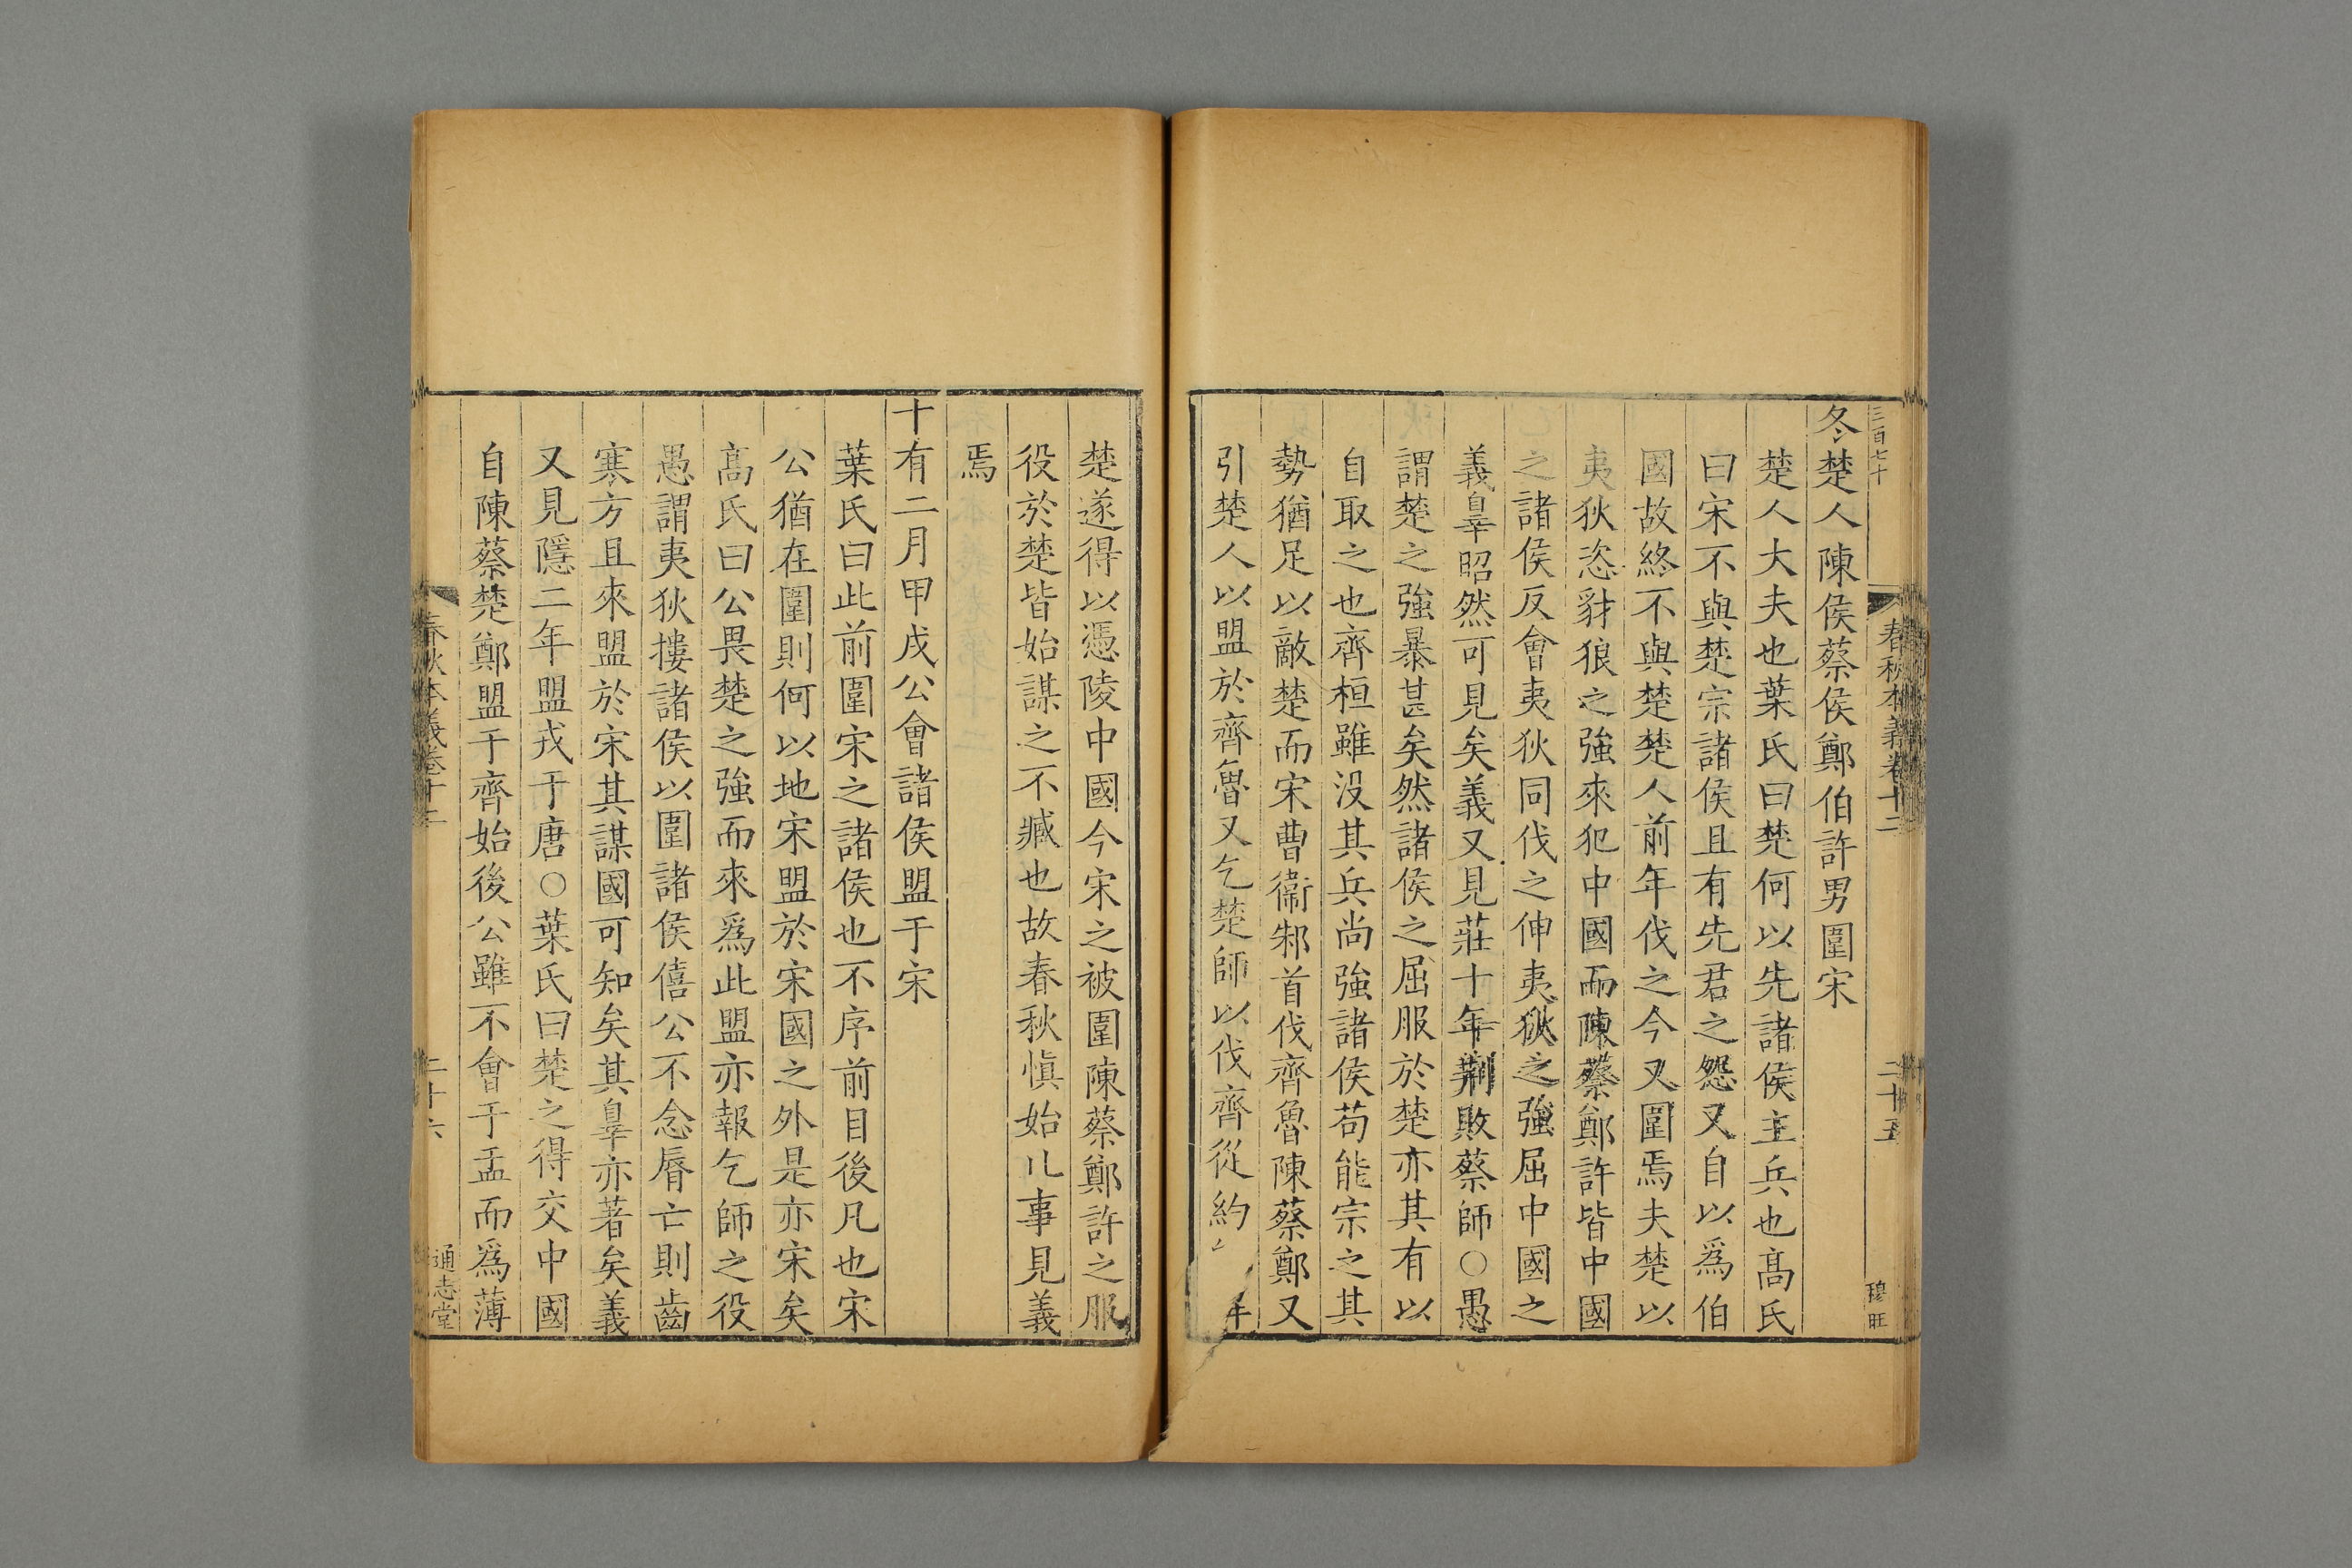 三百七十
春秋本義卷十二
二十五
穆旺
冬楚人陳侯蔡侯鄭伯許男圍宋
楚人大夫也葉氏曰楚何以先諸侯主兵也髙氏
曰宋不與楚宗諸侯且有先君之怨又自以爲伯
國故終不與楚楚人前年伐之今又圍焉夫楚以
夷狄恣豺狼之強來犯中國而陳蔡鄭許皆中國
之諸侯反會夷狄同伐之伸夷狄之強屈中國之
義辠昭然可見矣義又見莊十年荆敗蔡師○愚
謂楚之強暴甚矣然諸侯之屈服於楚亦其有以
自取之也齊桓雖没其兵尚強諸侯苟能宗之其
勢猶足以敵楚而宋曹衞邾首伐齊魯陳蔡鄭又
引楚人以盟於齊魯又乞楚師以伐齊從約
楚遂得以憑陵中國今宋之被圍陳蔡鄭許之服
役於楚皆始謀之不臧也故春秋愼始凡事見義
焉
十有二月甲戌公會諸侯盟于宋
葉氏曰此前圍宋之諸侯也不序前目後凡也宋
公猶在圍則何以地宋盟於宋國之外是亦宋矣
髙氏曰公畏楚之強而來爲此盟亦報乞師之役
愚謂夷狄摟諸侯以圍諸侯僖公不念脣亡則齒
寒方且來盟於宋其謀國可知矣其辠亦著矣義
又見隱二年盟戎于唐○葉氏曰楚之得交中國
自陳蔡楚鄭盟于齊始後公雖不會于盂而爲薄
春秋本義卷十二
二十六
通志堂